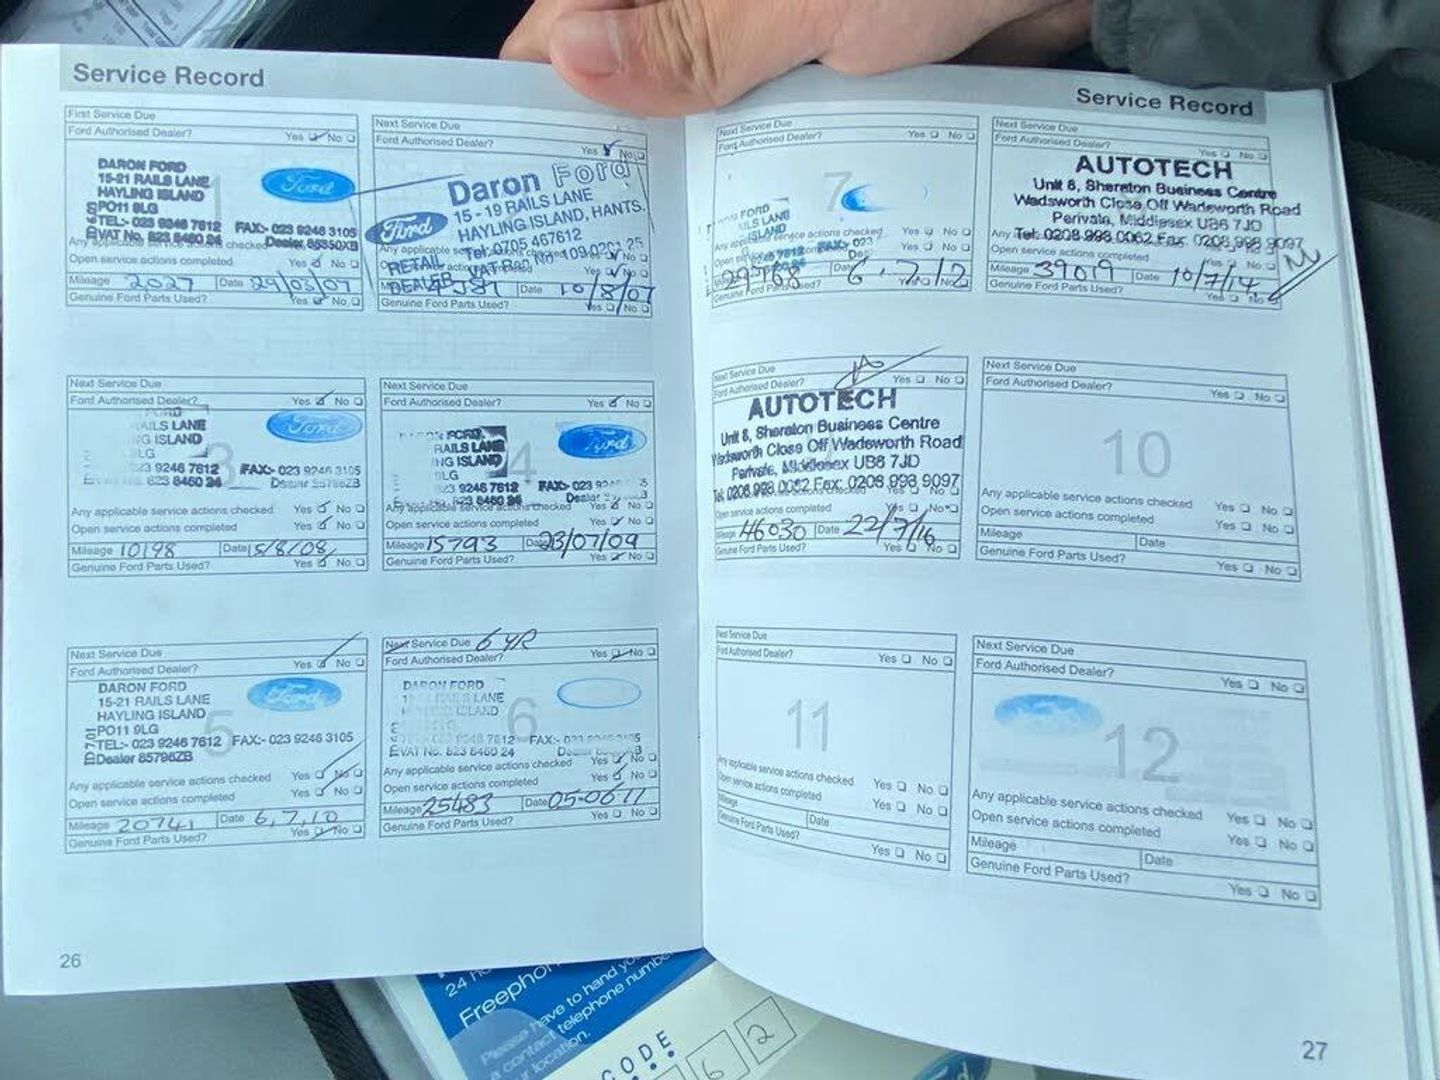 Service Record
First Service Due
Ford Authorised Dealer? Yes No
DARON FORD
15-21 RAILS LANE
HAYLING ISLAND
PO11 9LG
TEL:- 023 9246 7612 FAX:- 023 9246 3105
VAT No. 823 8460 24 Dealer 85350XB
Ford
Open service actions completed Yes No
Mileage 2027 Date 29/03/07
Genuine Ford Parts Used? Yes No
Next Service Due
Ford Authorised Dealer? Yes No
Daron Ford
Ford
15 - 19 RAILS LANE
HAYLING ISLAND, HANTS.
Tel: 0705 467612
VAT Reg. No. 109 0201 25
RETAIL
DEALER
Date 10/8/07
Yes No
Next Service Due
Ford Authorised Dealer? Yes No
Ford
023 9246 7612 FAX:- 023 9246 3105
823 8460 24
Any applicable service actions checked Yes No
Open service actions completed Yes No
Mileage 10198 Date 15/8/08
Genuine Ford Parts Used? Yes No
Next Service Due
Ford Authorised Dealer? Yes No
FORD
RAILS LANE
ISLAND
4
9246 7612 FAX:- 023
823 8460 24 Dealer
Any applicable service actions checked Yes No
Open service actions completed Yes No
Mileage 15793 Date 23/07/09
Genuine Ford Parts Used? Yes No
Next Service Due
Ford Authorised Dealer? Yes No
DARON FORD
15-21 RAILS LANE
HAYLING ISLAND
PO11 9LG
TEL:- 023 9246 7612 FAX:- 023 9246 3105
Dealer 85796ZB
Ford
5
Any applicable service actions checked Yes No
Open service actions completed Yes No
Mileage 20741 Date 6,7,10
Genuine Ford Parts Used? Yes No
Next Service Due 6 YR
Ford Authorised Dealer? Yes No
DARON FORD
6
VAT No. 823 8460 24
Any applicable service actions checked Yes No
Open service actions completed Yes No
Mileage 25483 Date 05-06 11
Genuine Ford Parts Used? Yes No
26
Service Record
Next Service Due
Ford Authorised Dealer? Yes No
7
FORD
ISLAND
Any applicable service actions checked Yes No
Yes No
Date 6.7.12
Genuine Ford Parts Used? Yes No
Next Service Due
Ford Authorised Dealer? Yes No
AUTOTECH
Unit 8, Sheraton Business Centre
Wadsworth Close Off Wadsworth Road
Perivale, Middlesex UB6 7JD
Tel: 0208 998 0062 Fax: 0208 998 9097
Open service actions completed Yes No
Mileage 39019 Date 10/7/14
Genuine Ford Parts Used? Yes No
Next Service Due
Ford Authorised Dealer? Yes No
AUTOTECH
Unit 8, Sheraton Business Centre
Wadsworth Close Off Wadsworth Road
Perivale, Middlesex UB6 7JD
Tel: 0208 998 0062 Fax: 0208 998 9097
Open service actions completed Yes No
Mileage 46030 Date 22/7/16
Genuine Ford Parts Used? Yes No
Next Service Due
Ford Authorised Dealer? Yes No
10
Any applicable service actions checked Yes No
Open service actions completed Yes No
Mileage Date
Genuine Ford Parts Used? Yes No
Next Service Due
Ford Authorised Dealer? Yes No
11
Any applicable service actions checked Yes No
Open service actions completed Yes No
Mileage Date
Genuine Ford Parts Used? Yes No
Next Service Due
Ford Authorised Dealer? Yes No
12
Any applicable service actions checked Yes No
Open service actions completed Yes No
Mileage Date
Genuine Ford Parts Used? Yes No
27
24
Please have to hand
a contact telephone number
location.
CODE
6 2